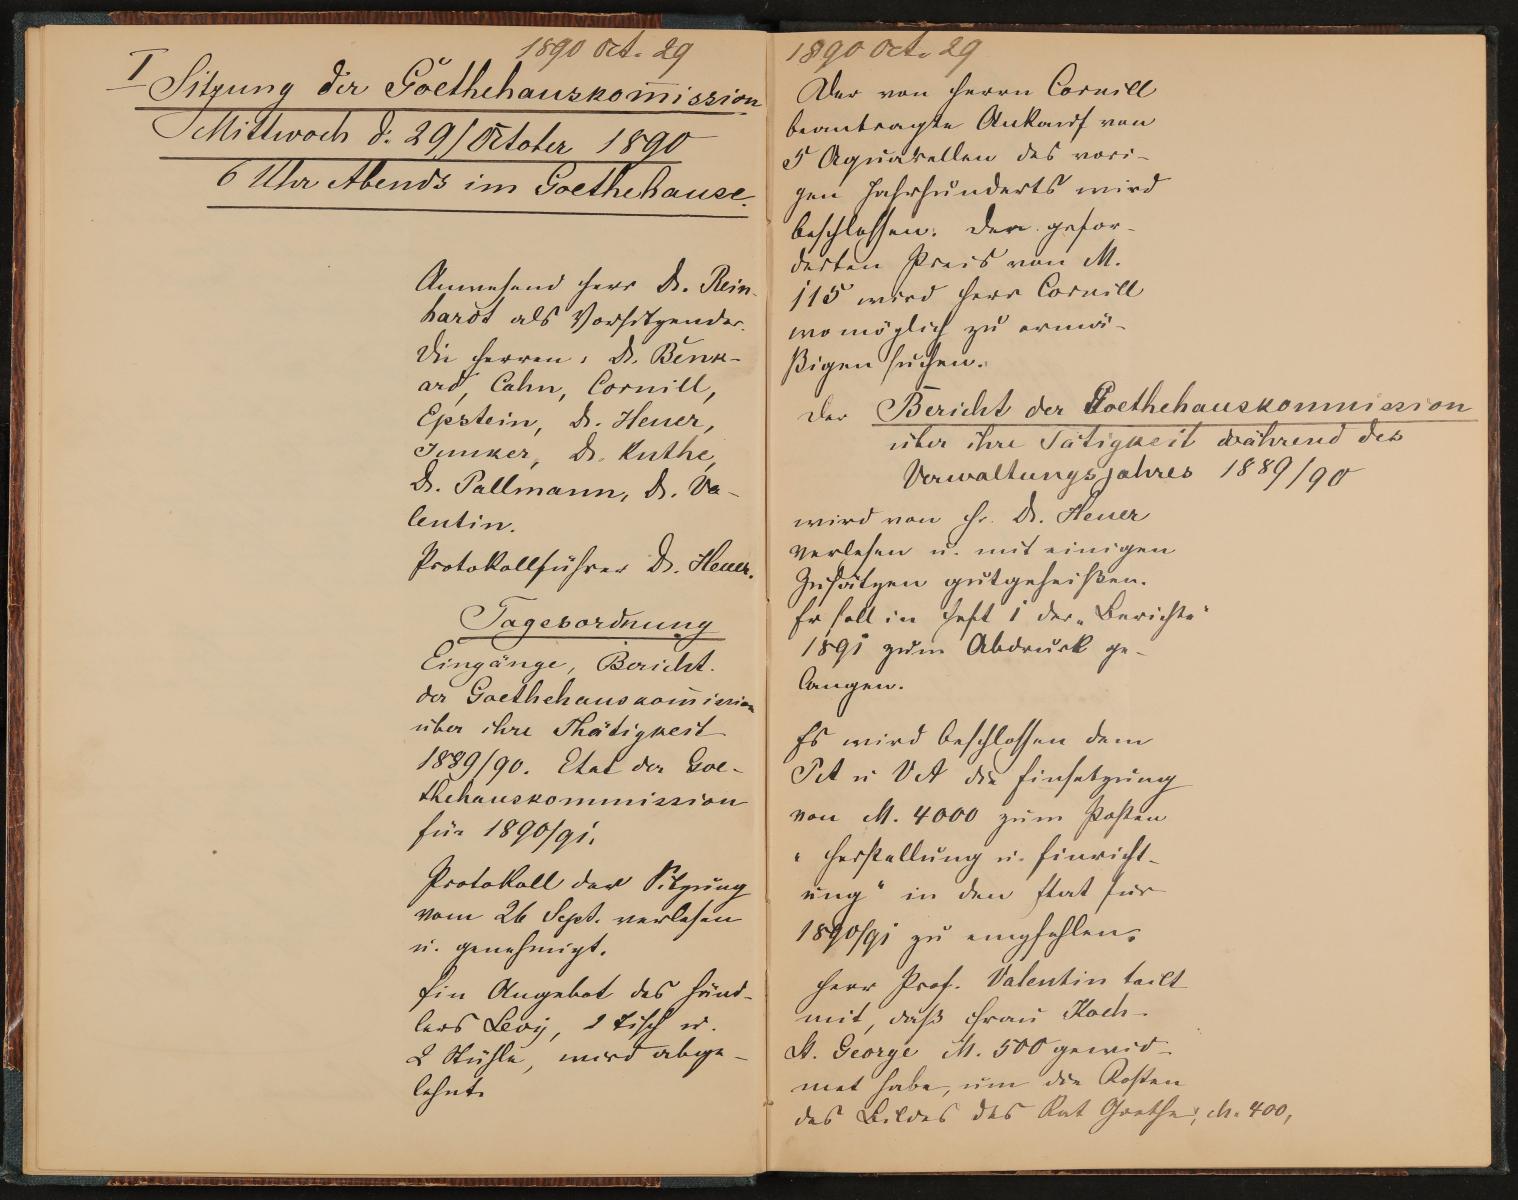 1890 Oct. 29
I
Sitzung der Goethehauskom̅ission
Mittwoch d. 29/October 1890
6 Uhr Abends im Goethehause.
Anwesend Herr Dr. Rein-
hardt als Vorsitzender.
Die Herren: Dr. Benk-
ard, Cahn, Cornill,
Epstein, Dr. Heuer,
Junker, Dr. Kuthe,
Dr. Pallmann, Dr. Va-
lentin.
Protokollführer Dr. Heuer.
Tagesordnung
Eingänge, Bericht
der Goethehauskom̅ission
über ihre Thätigkeit
1889/90. Etat der Goe-
thehauskommission
für 1890/91.
Protokoll der Sitzung
vom 26 Sept. verlesen
u. genehmigt.
Ein Angebot des Händ-
lers Levy, 1 Tisch u.
2 Stühle, wird abge-
lehnt.
1890 Oct. 29
Der von Herrn Cornill
beantragte Ankauf von
5 Aquarellen des vori-
gen Jahrhunderts wird
beschlossen. Den gefor-
derten Preis von M.
115 wird Herr Cornill
womöglich zu ermä-
ßigen suchen.
Der Bericht der Goethehauskommission
über ihre Tätigkeit während des
Verwaltungsjahres 1889/90
wird von H. Dr. Heuer
verlesen u. mit einigen
Zusätzen gutgeheißen.
Er soll in Heft 1 der „Berichte“
1891 zum Abdruck ge-
langen.
Es wird beschlossen dem
PA u VA die Einsetzung
von M. 4000 zum Posten
„Herstellung u. Einricht-
ung“ in den Etat für
1890/91 zu empfehlen.
Herr Prof. Valentin teilt
mit, daß Frau Koch-
St. George M. 500 gewid-
met habe, um die Kosten
des Bildes des Rat Goethe, M. 400,